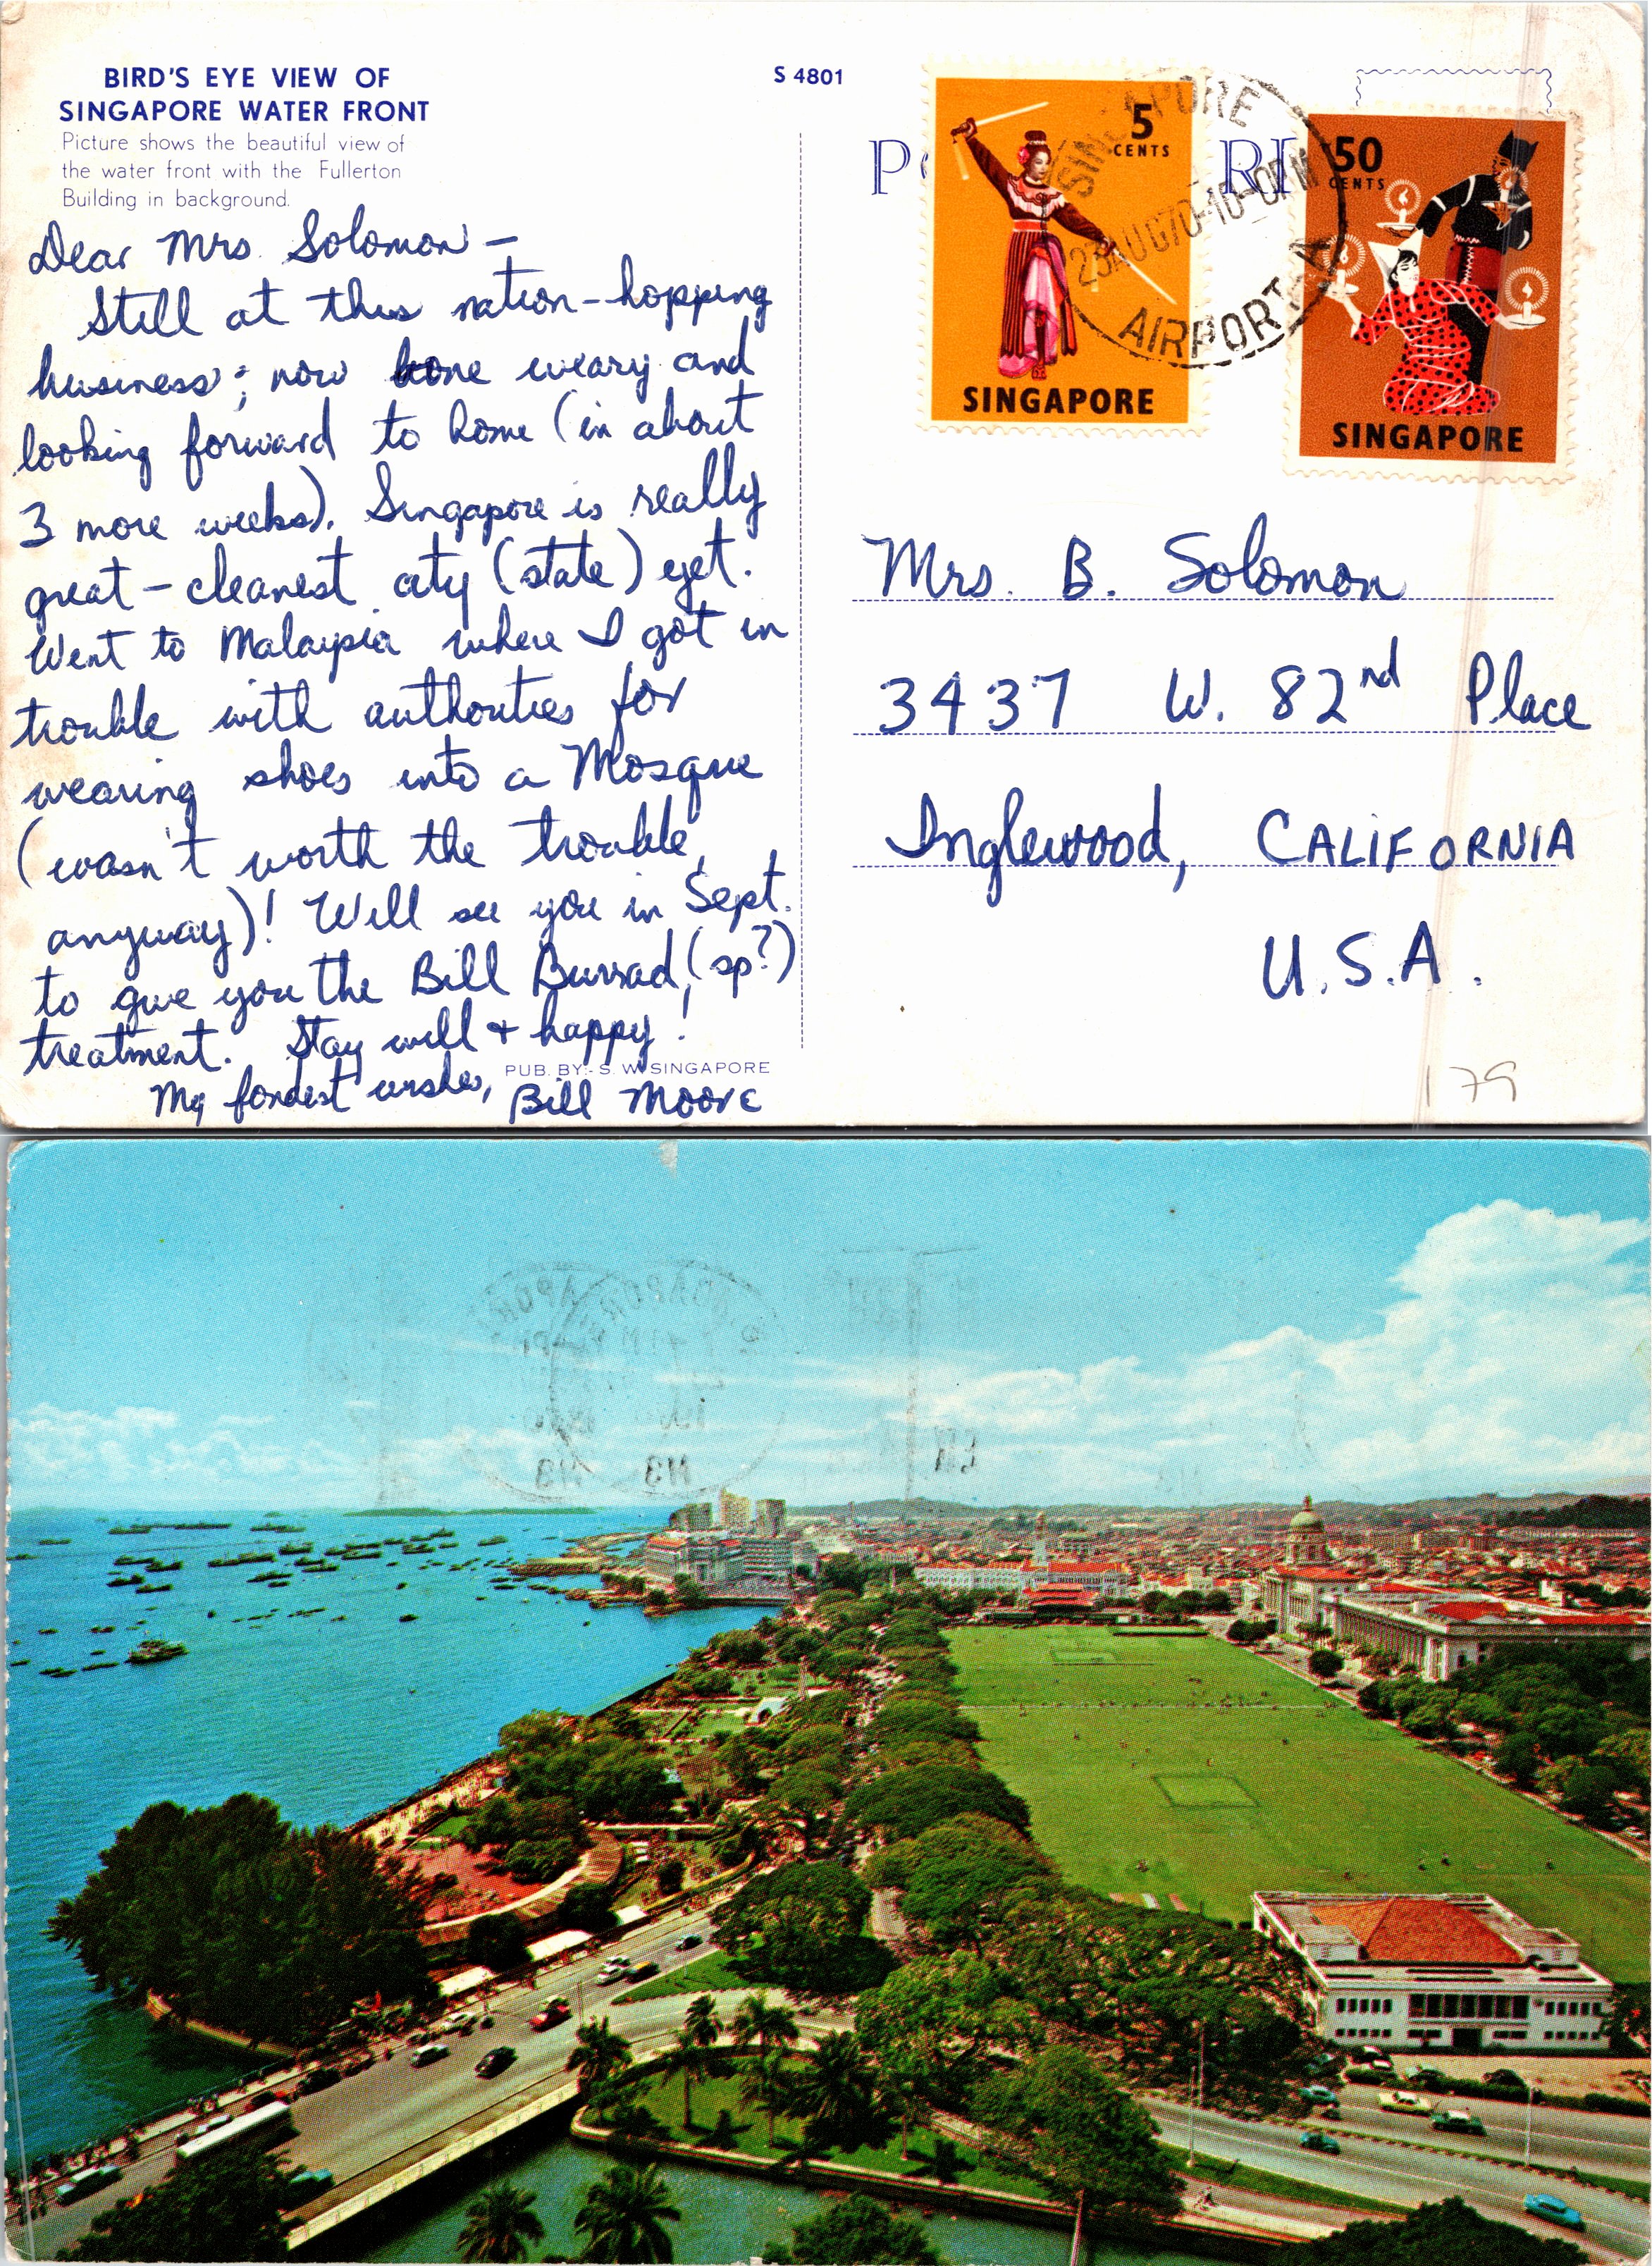 BIRD'S EYE VIEW OF
SINGAPORE WATER FRONT
Picture shows the beautiful view of
the water front with the Fullerton
Building in background.
S 4801
Dear Mrs. Solomon –
Still at this nation-hopping
business; now bone weary and
looking forward to home (in about
3 more weeks). Singapore is really
great – cleanest city (state) yet.
Went to Malaysia where I got in
trouble with authorities for
wearing shoes into a Mosque
(wasn't worth the trouble,
anyway)! Will see you in Sept.
to give you the Bill (sp?)
treatment. Stay well + happy!
My fondest wishes,
Bill Moore
PUB. BY:- S. W. SINGAPORE
5
CENTS
SINGAPORE
50
CENTS
SINGAPORE
SINGAPORE
23AUG70-10-0PM
AIRPORT-A
Mrs. B. Solomon
3437 W. 82nd Place
Inglewood, CALIFORNIA
U.S.A.
179